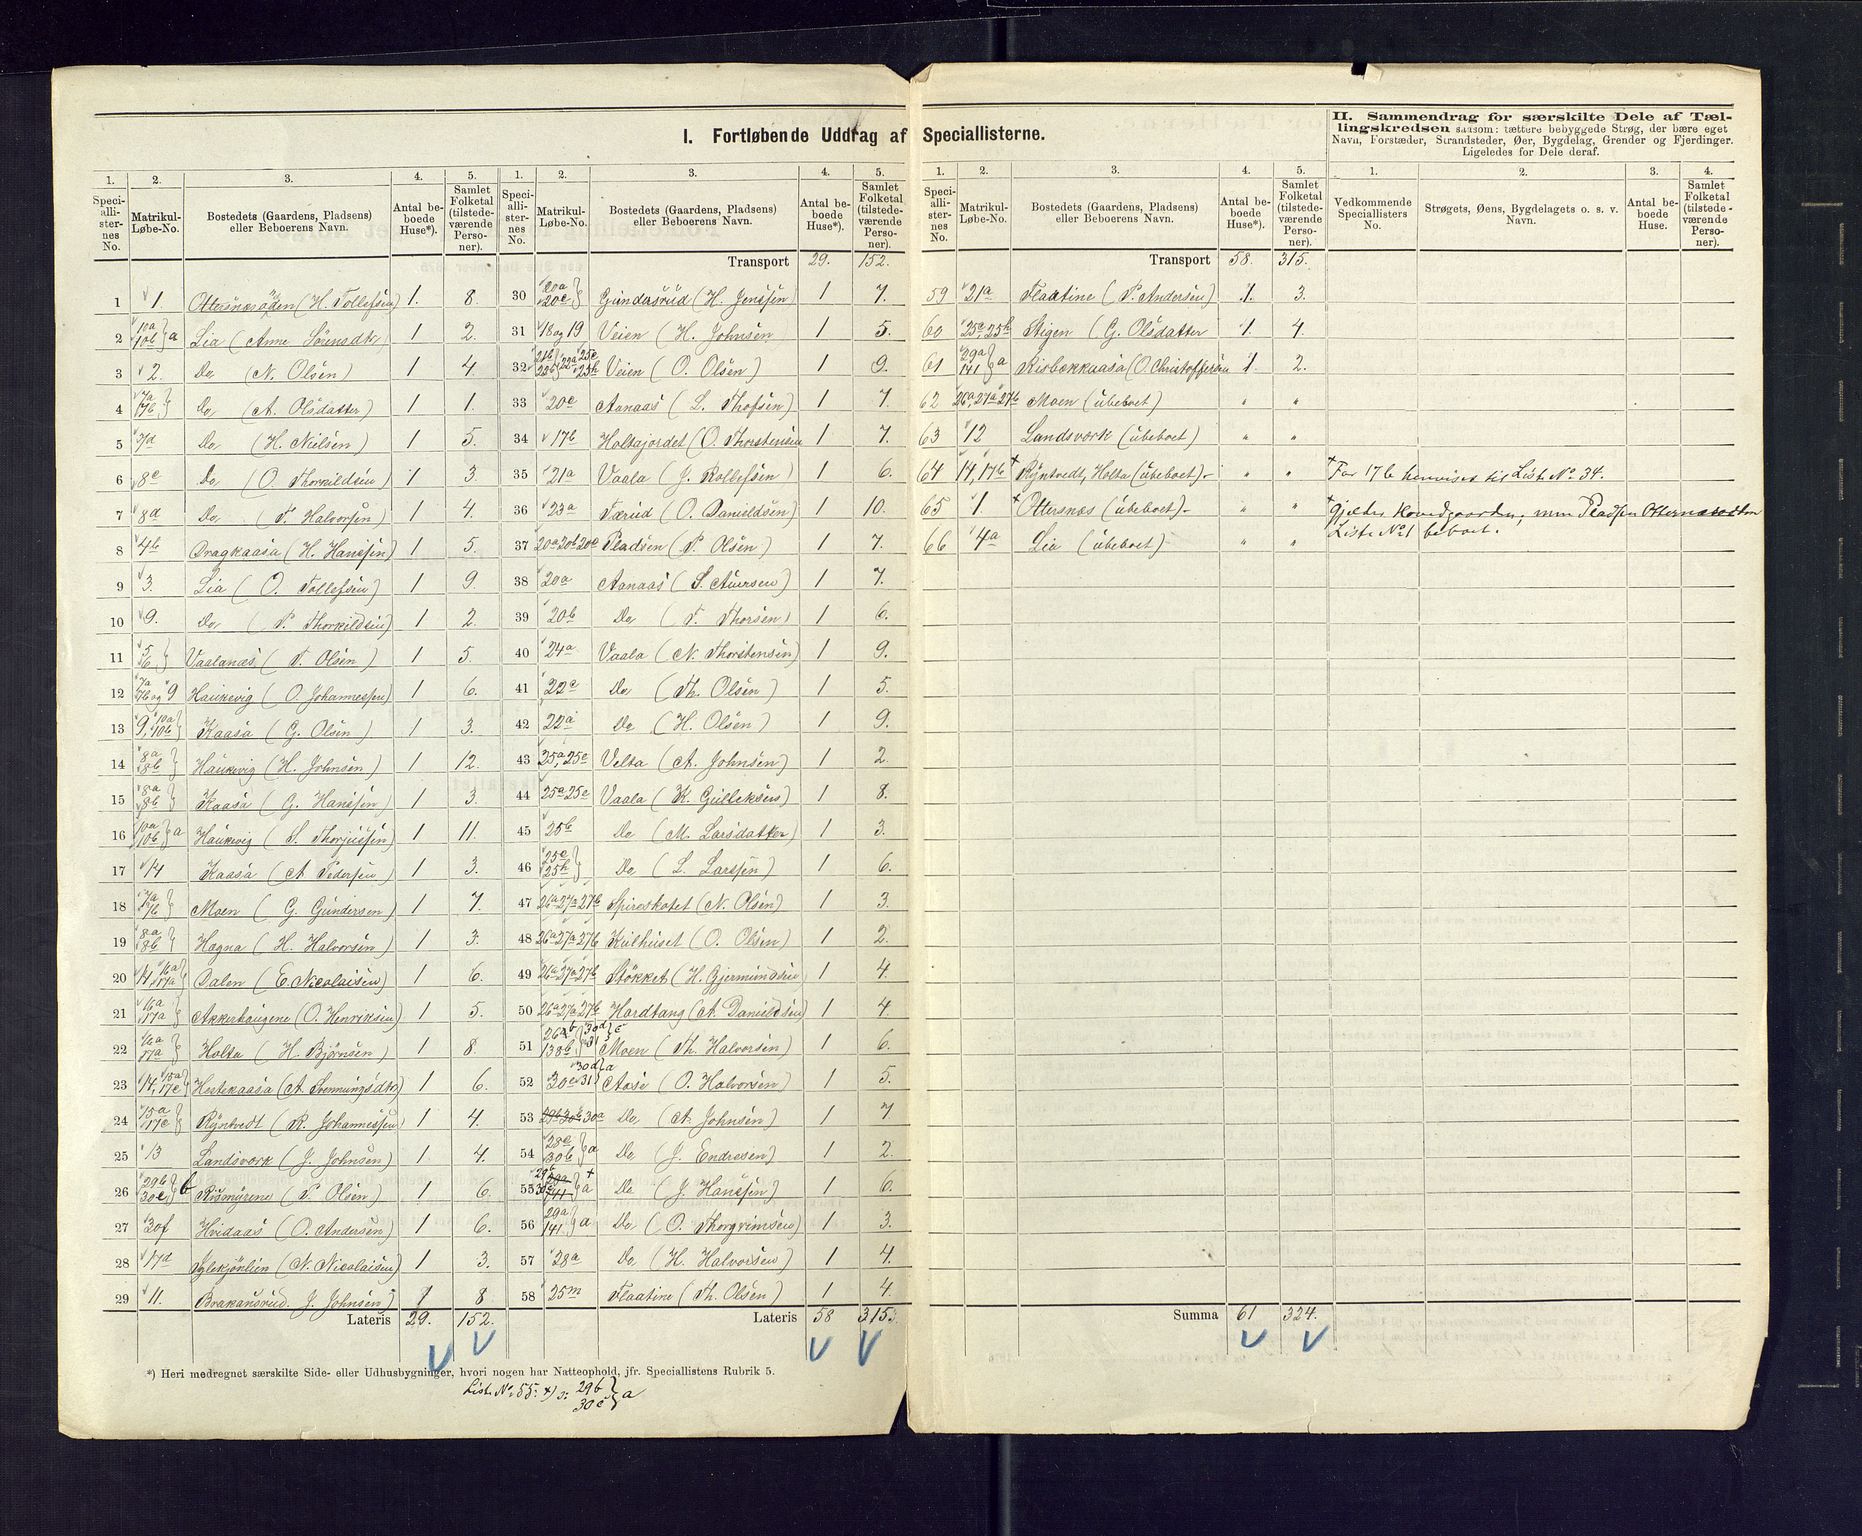 I. Fortløbende Uddrag af Speciallisterne.
II. Sammendrag for særskilte Dele af Tæl-
lingskredsen saasom: tættere bebyggede Strøg, der bære eget
Navn, Forstæder, Strandsteder, Øer, Bygdelag, Grender og Fjerdinger.
Ligeledes for Dele deraf.
1. 2. 3. 4. 5.
Speciallisternes No. Matrikul-Løbe-No. Bostedets (Gaardens, Pladsens) eller Beboerens Navn. Antal beboede Huse*). Samlet Folketal (tilstedeværende Personer).
1 1. Ottersnæsöden (H. Tollefsen) 1. 8.
2 10a 10b } a Lia (Anne Sörensdtr) 1 2.
3 2. Do (N. Olsen) 1 4.
4 7a 7b } Do (A. Olsdatter) 1 1.
5 7d Do (H. Nielsen) 1 5.
6 8c Do (O. Thorkildsen) 1 3.
7 8d Do (T. Halvorsen) 1 4.
8 4b Dragkaasa (H. Hanssen) 1 5.
9 3. Lia (O. Tollefsen) 1 9.
10 9. Do (P. Thorkildsen) 1 2.
11 5 6 } Vaalanæs (T. Olsen) 1 5.
12 7a 7b og 9 Haukevig (O. Johannessen) 1 6.
13 9, 10a 10b } Kaasa (G. Olsen) 1 3.
14 8a 8b } Haukevig (H. Johnsen) 1 12.
15 8a 8b } Kaasa (G. Hanssen) 1 3.
16 10a 10b } a Haukevig (S. Thorjussen) 1 11.
17 14 Kaasa (A Pedersen) 1 3.
18 7a 7b } Moen (G. Gundersen) 1 7.
19 8a 8b } Hagna (H. Halvorsen) 1 3.
20 14, 16a 17a } Dalen (E. Nicolaisen) 1 6.
21 16a 17a } Akkerhaugene (O. Henriksen) 1 5.
22 16a 17a } Holta (H. Bjørnsen) 1 8.
23 14, 15a 17c } Hestekaasa (A. Svennungsdtr) 1 6.
24 15a 17c } Ryntvedt (R. Johannessen) 1 4.
25 13 Landsvork (J. Johnsen) 1 4.
26 29b 30c } b Rismyrene (P. Olsen) 1 6.
27 30f Hvidaas (O. Andersen) 1 6.
28 17d Iglekjönlien (N. Nicolaisen) 1 3.
29 11. Brakansrud J. Johnsen 1 8
Lateris 29. 152.
1. 2. 3. 4. 5.
Speciallisternes No. Matrikul-Løbe-No. Bostedets (Gaardens, Pladsens) eller Beboerens Navn. Antal beboede Huse*). Samlet Folketal (tilstedeværende Personer).
Transport 29. 152.
30 20a 20c } Gundasrud (H. Jenssen) 1 7.
31 18 og 19 Veien (H. Johnsen) 1 5.
32 21b 22b } 22a 25c 25h Veien (O. Olsen) 1 9.
33 20c Aanaas (L. Thofsen) 1 7.
34 17b Holtajordet (O. Thorstensen 1 7.
35 21a Vaala (J. Rollefsen) 1 6.
36 23a Færud (O. Danieldsen) 1 10.
37 20a 20b 20c Pladsen (P. Olsen) 1 7.
38 20a Aanaas (S. Aversen) 1 7.
39 20b Do (T. Thorsen) 1 6.
40 24a Vaala (N. Thorstensen) 1 9.
41 22c Do (Th. Olsen) 1 5.
42 22a Do (H. Olsen) 1 9.
43 25a, 25c Velta (A. Johnsen) 1 2.
44 25a 25c Vaala (K. Gulleksen) 1 8.
45 25b Do (M. Larsdatter) 1 3.
46 25c 25h } Do (L. Larssen) 1 6.
47 26a 27a 27b Spireskotet (N. Olsen) 1 3.
48 26a 27a 27b Kulhuset (O. Olsen) 1 2.
49 26a 27a 27b Stökket (H. Gjermundsen 1 4
50 26a 27a 27b Hardtang (A. Danieldsen) 1 4.
51 26b 138b } 30d 31 } c Moen (Th. Halvorsen) 1 6.
52 30c 30d 31 } a Aase (O. Halvorsen) 1 5.
53 29b 30b 30a Do (A. Johnsen) 1 7.
54 28c 30b } a Do (J. Endresen) 1 2.
55 29b 30c 29a 141 } a + Do (J. Hanssen) 1 6.
56 29a 141. } a Do (O. Thorgrimsen) 1 3.
57 28a Do (H. Halvorsen) 1 4.
58 25m Flaatine (Th. Olsen) 1 4.
Lateris 58 315.
1. 2. 3. 4. 5.
Speciallisternes No. Matrikul-Løbe-No. Bostedets (Gaardens, Pladsens) eller Beboerens Navn. Antal beboede Huse*). Samlet Folketal (tilstedeværende Personer).
Transport 58. 315.
59 21a Flaatine (P. Andersen) 1. 3.
60 25a, 25h Stigen (G. Olsdatter 1. 4.
61 29a 141 } a Risbækkaasa (O. Christoffersen 1. 2.
62 26a, 27a 27b Moen (ubeboet) " "
63 12 Landsvork (ubeboet) " "
64 14, 17b + Ryntvedt, Holta (ubeboet).- " "
65 1. + Ottersnæs (ubeboet).- " "
66 4a Lia (ubeboet) " "
Summa 61 324.
1. 2. 3. 4.
Vedkommende Speciallisters No. Strøgets, Øens, Bygdelagets o. s. v. Navn. Antal beboede Huse. Samlet Folketal (tilstedeværende Personer).
+ For 17b henvises til List No 34.
+ gjelder Hovedgaarden, men Pladsen Ottersnæsöden
Liste No 1 beboet.
*) Heri medregnet særskilte Side- eller Udhusbygninger, hvori nogen har Natteophold, jfr. Speciallistens Rubrik 5.
List. No. 55. +) o: 29b 30c } a